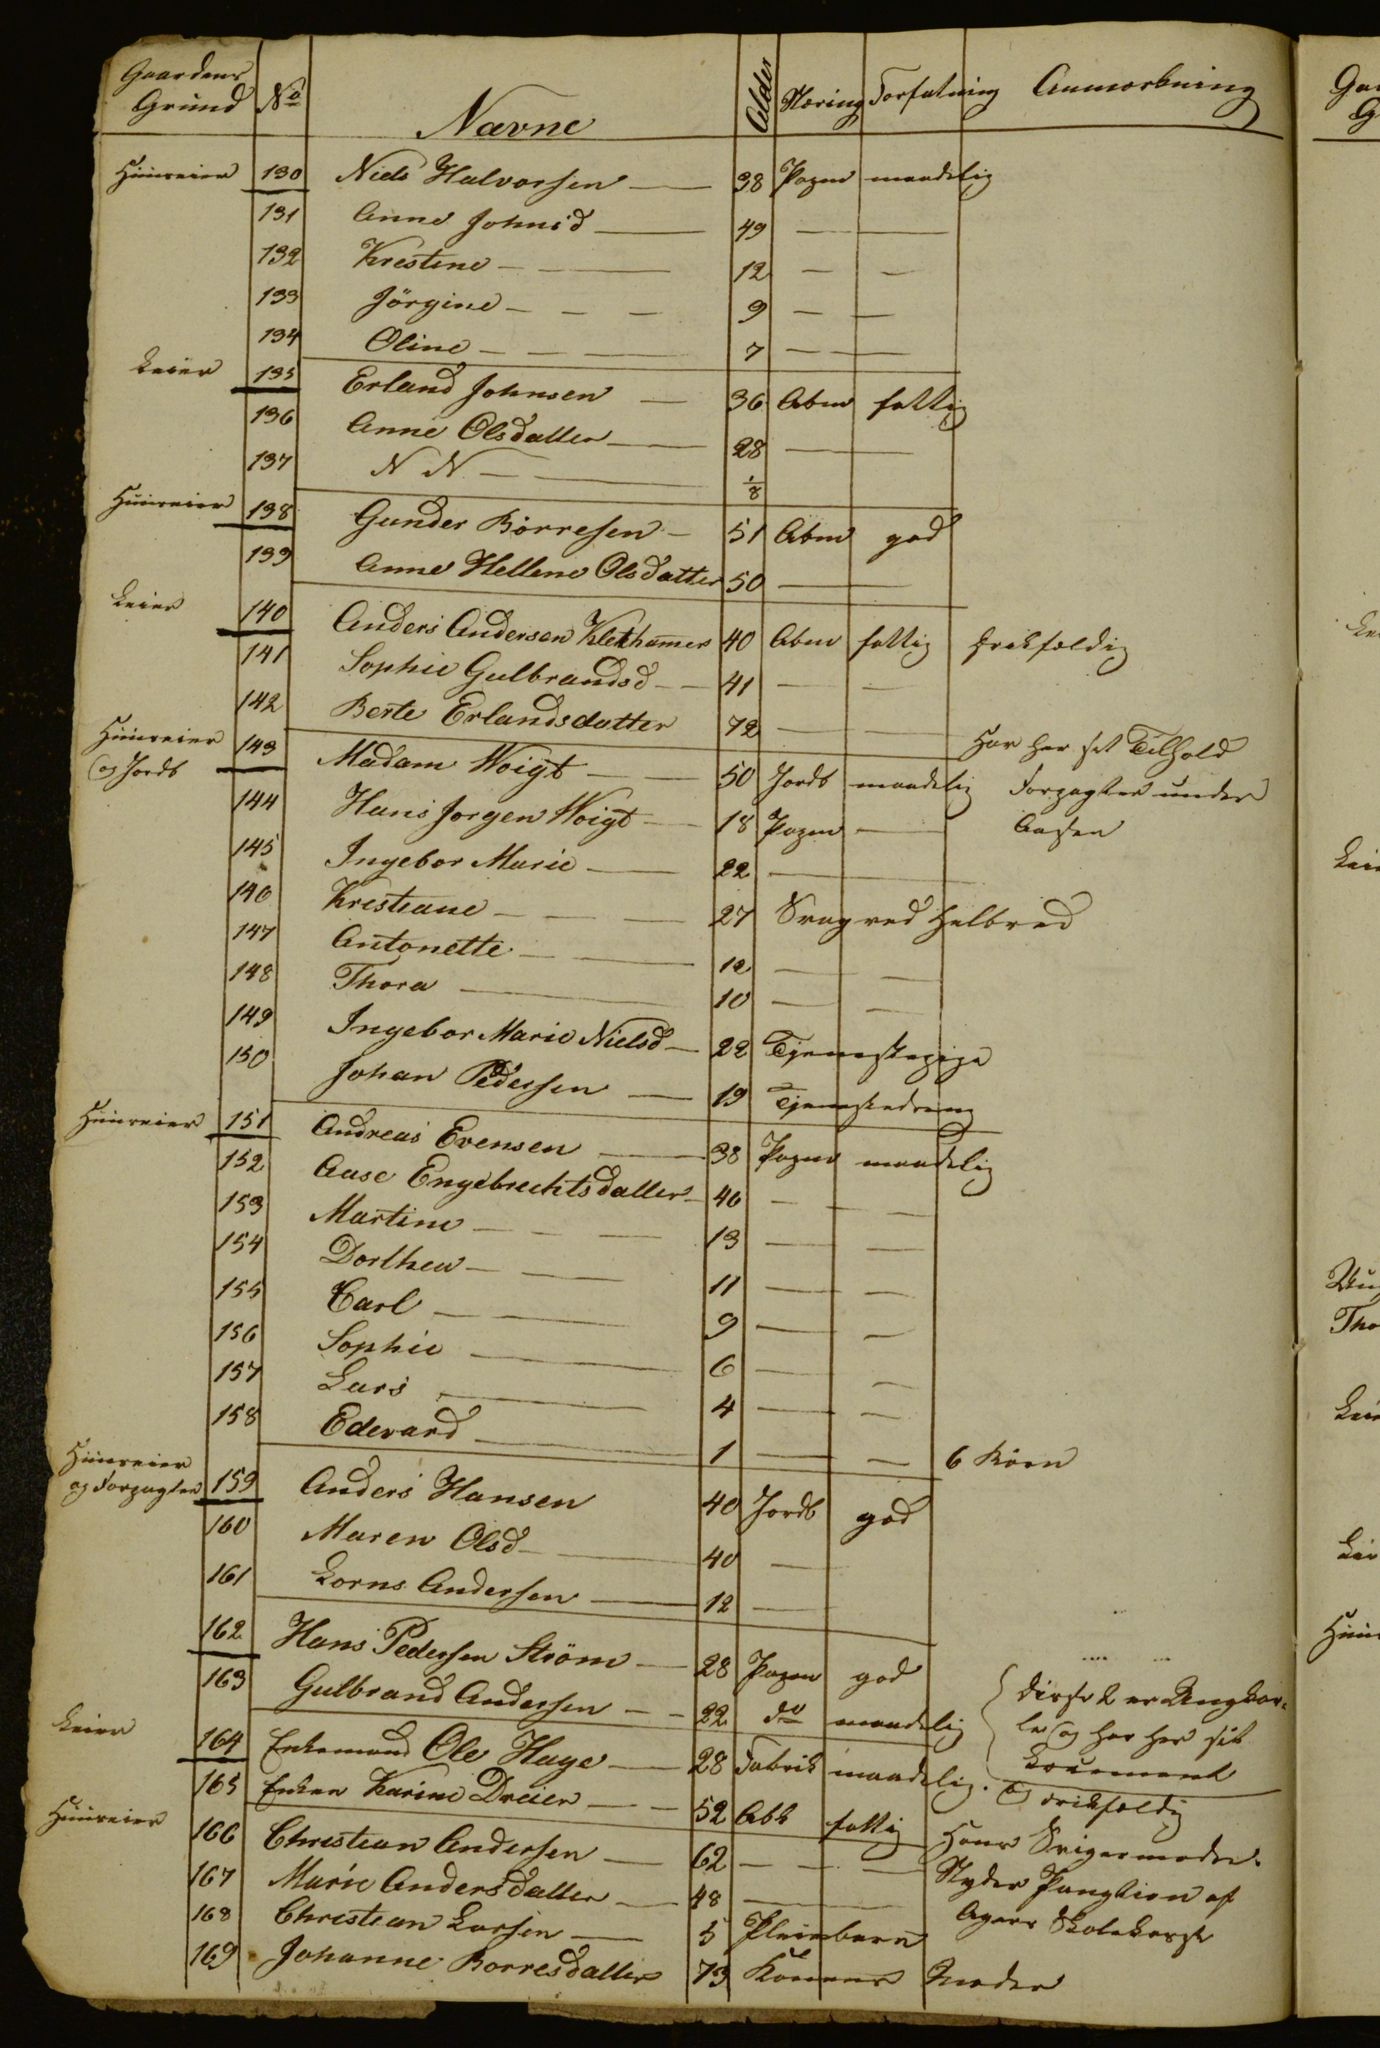 Gaardens Grund No Navne Alder Næring Forfatning Anmærkning
Huuseier 130 Niels Halvorsen 38 maadelig
131 Anne Johnsd 49
132 Krestine 12
133 Jörgine 9
134 Oline 7
Leier 135 Erland Johnsen 36 Abm fattig
136 Anne Olsdatter 28
137 N N 1/8
Huuseier 138 Gunder Börresen 51 Abm god
139 Anne Hellene Olsdatter 50
Leier 140 Anders Andersen Klekhamer 40 Abm fattig
141 Sophie Gulbrandsd 41
142 Berte Erlandsdatter 72 Har her sit Tilhold
Huuseier og Jordb 143 Madam Woigt 50 Jordb maadelig Forpagter under
144 Hans Jorgen Woigt 18 Aasen
145 Ingebor Marie 22
146 Krestiane 27 Svag ved Helbred
147 Antonette 12
148 Thora 10
149 Ingebor Marie Nielsd 22 Tjenestepige
150 Johan Pedersen 19 Tjenestedreng
Huuseier 151 Andreas Evensen 38 maadelig
152 Aase Engebrechtsdatter 46
153 Martine 13
154 Dorthea 11
155 Carl 9
156 Sophie 6
157 Lars 4
158 Edevard 1 6 Börn
Huuseier og Forpagter 159 Anders Hansen 40 Jordb god
160 Maren Olsd 40
161 Andersen 12
162 Hans Pedersen Ström 28 god
163 Gulbrand Andersen 22 do maadelig Disse 2 er Ungkar-
le og har her sit
Leier 164 Enkemand Ole Hage 28 Fabrik maadelig. Logement
165 Enken Karine Dreier 52 fattig
Huuseier 166 Christian Andersen 62 Hans Svigermoder.
167 Marie Andersdatter 48 Nyder Pangtion af
168 Christian Larsen 5 Pleiebarn Agers Skolekasse
169 Johanne Borresdatter 73 Konens Moder